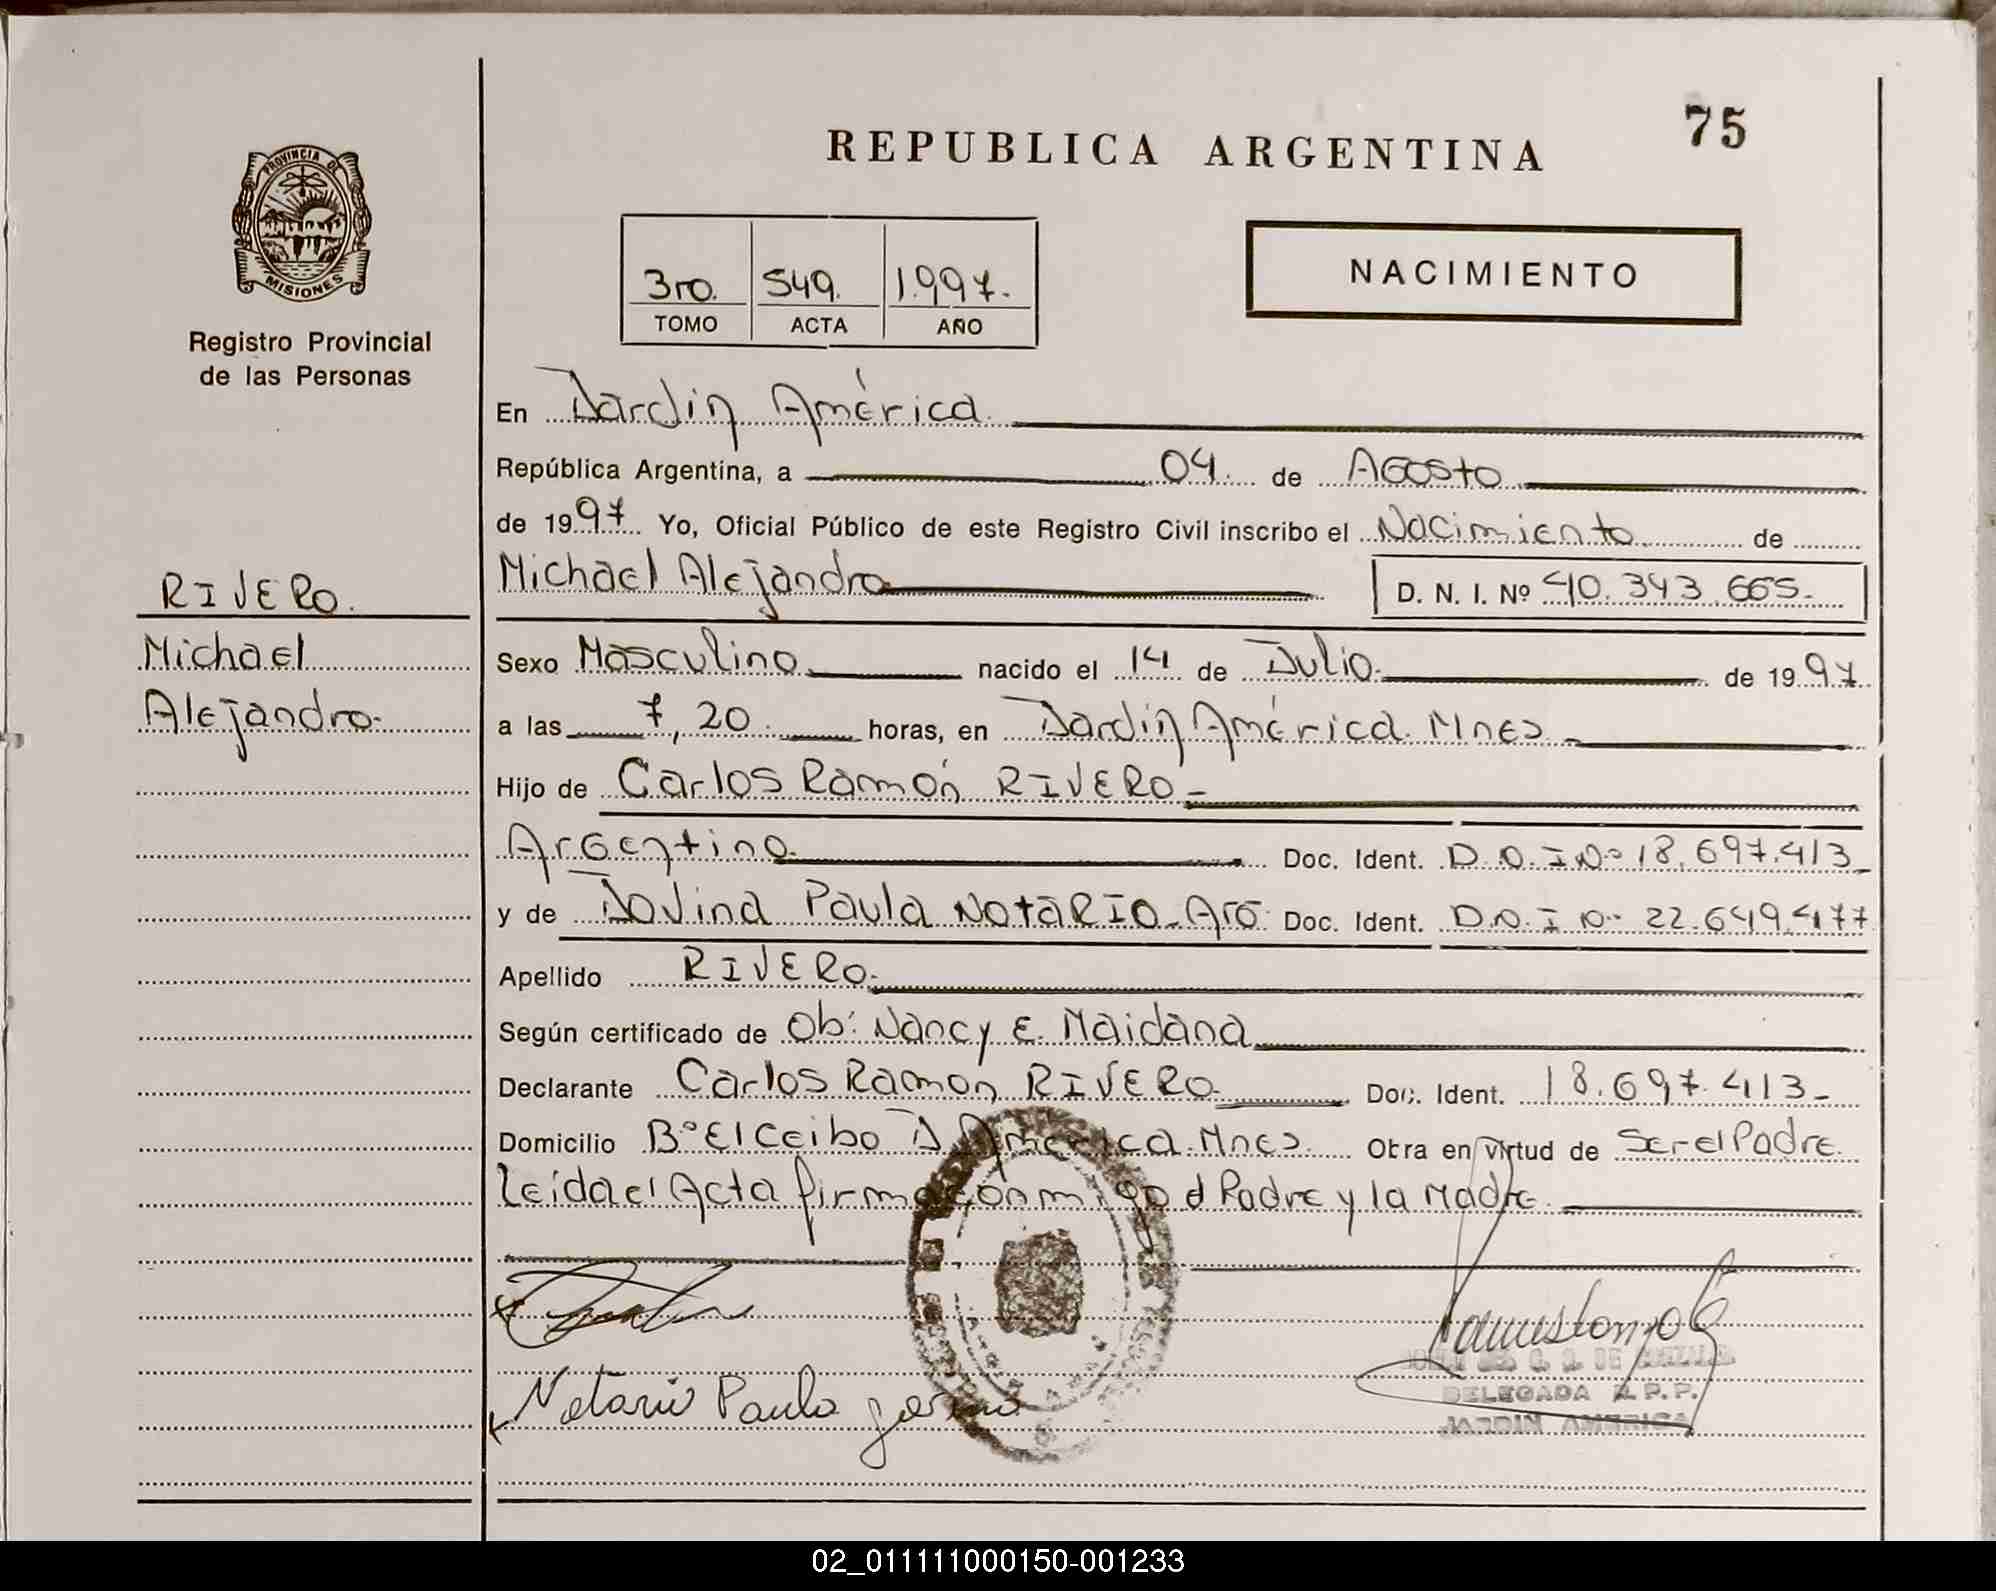 75
REPUBLICA ARGENTINA
PROVINCIA DE
MISIONES
Registro Provincial
de las Personas
3ro. 549. 1.997.
TOMO ACTA AÑO
NACIMIENTO
En Jardín América
República Argentina, a 04 de Agosto
de 1997 Yo, Oficial Público de este Registro Civil inscribo el Nacimiento de
Michael Alejandro D. N. I. Nº 40.343.665.
RIVERO.
Michael
Alejandro
Sexo Masculino nacido el 14 de Julio de 1997
a las 7,20 horas, en Jardín América. Mnes
Hijo de Carlos Ramón RIVERO
Argentino Doc. Ident. D.N.I Nº 18.697.413
y de Jovina Paula NOTARIO Arg Doc. Ident. D.N.I Nº 22.649.477
Apellido RIVERO
Según certificado de Ob: Nancy E. Maidana
Declarante Carlos Ramon RIVERO Doc. Ident. 18.697.413
Domicilio Bº El Ceibo J América. Mnes. Otra en virtud de Ser el Padre
Leida el Acta firma conmigo el Padre y la Madre
Notario Paula
DELEGADA R.P.P.
JARDIN AMERICA
02_011111000150-001233